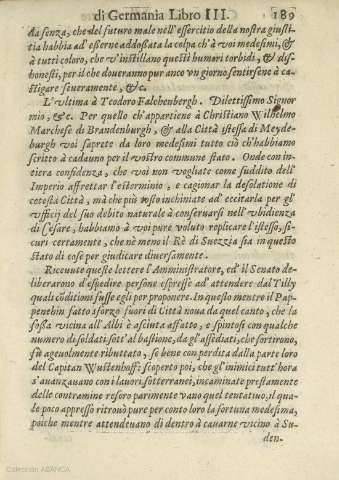 di Germania Libro III. 189
da senza, che del futuro male nell'essercitio della nostra giusti-
tia habbia ad'esserne addossata la colpa ch'à voi medesimi, &
à tutti coloro, che v'instillano questi humori torbidi, & dis-
honesti, per il che doueranno pur anco vn giorno sentirsene à ca-
stigare seueramente, &c.
L'vltima à Teodoro Falchenbergh. Dilettissimo Signor
mio, &c. Per quello ch'appartiene à Christiano Wilhelmo
Marchese di Brandenburgh, & alla Città istessa di Meyde-
burgh voi saprete da loro medesimi tutto ciò c'habbiamo
scritto à cadauno per il vostro commune stato. Onde con in-
tiera confidenza, che voi non vogliate come suddito dell'
Imperio affrettar l'esterminio, e cagionar la desolatione di
cotestà Città, mà che più tosto inchiniate ad'eccitarla per gl'
vfficij del suo debito naturale à conseruarsi nell'vbidienza
di Cesare, habbiamo à voi pure voluto replicare l'istesso, si-
curi certamente, che nè meno il Rè di Suezzia sia in questo
stato di cose per giudicare diuersamente.
Riceuute queste lettere l'Amministratore, ed il Senato de-
liberarono d'espedire persone espresse ad'attendere dal Tilly
quali cõditioni fusse egli per proporre. In questo mentre il Pap-
penehin fatto sforzo fuori di Città noua da quel canto, che la
fossa vicina all'Albi è asciuta affatto, e spintosi con qualche
numero di soldati sott'al bastione, da gl'assediati, che sortirono,
fù ageuolmente ributtato, se bene con perdita dalla parte loro
del Capitan Wustenhoff: scoperto poi, che gl'inimici tutt'hora
s'auanzauano con i lauori sotterranei, incaminate prestamente
delle contramine resero parimente vano quel tentatiuo, il qua-
le poco appresso ritrouò pure per conto loro la fortuna medesima,
poiche mentre attendeuano di dentro à cauarne vicino à Su-
den-
Colección ABANCA